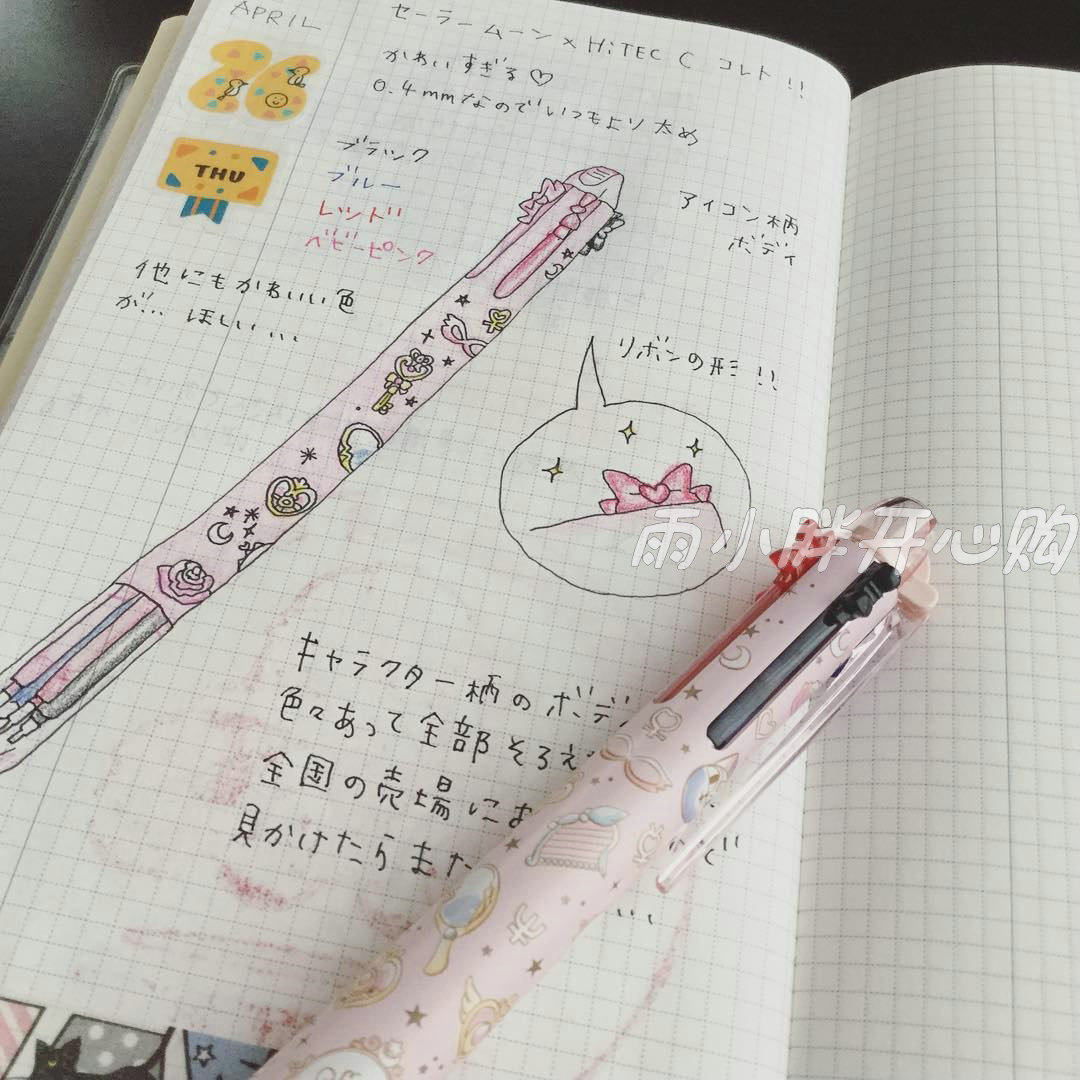 APRIL
26
THU
セーラームーン×HiTEC C コレト!!
かわいすぎる♡
0.4mmなのでいつもより太め
ブラック
ブルー
レッド
ベビーピンク
アイコン柄
ボディ
他にもかわいい色
が… ほしい…
リボンの形!!
雨小胖开心购
キャラクター柄のボディ
色々あって全部そろえ
全国の売場にあ
見かけたらまた